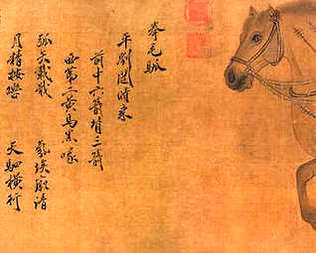 拳毛騧
平劉闥時乘
前中六箭背三箭
西第二黃馬黑喙
孤矢載戢 氛埃廓清
月精按轡 天駟橫行